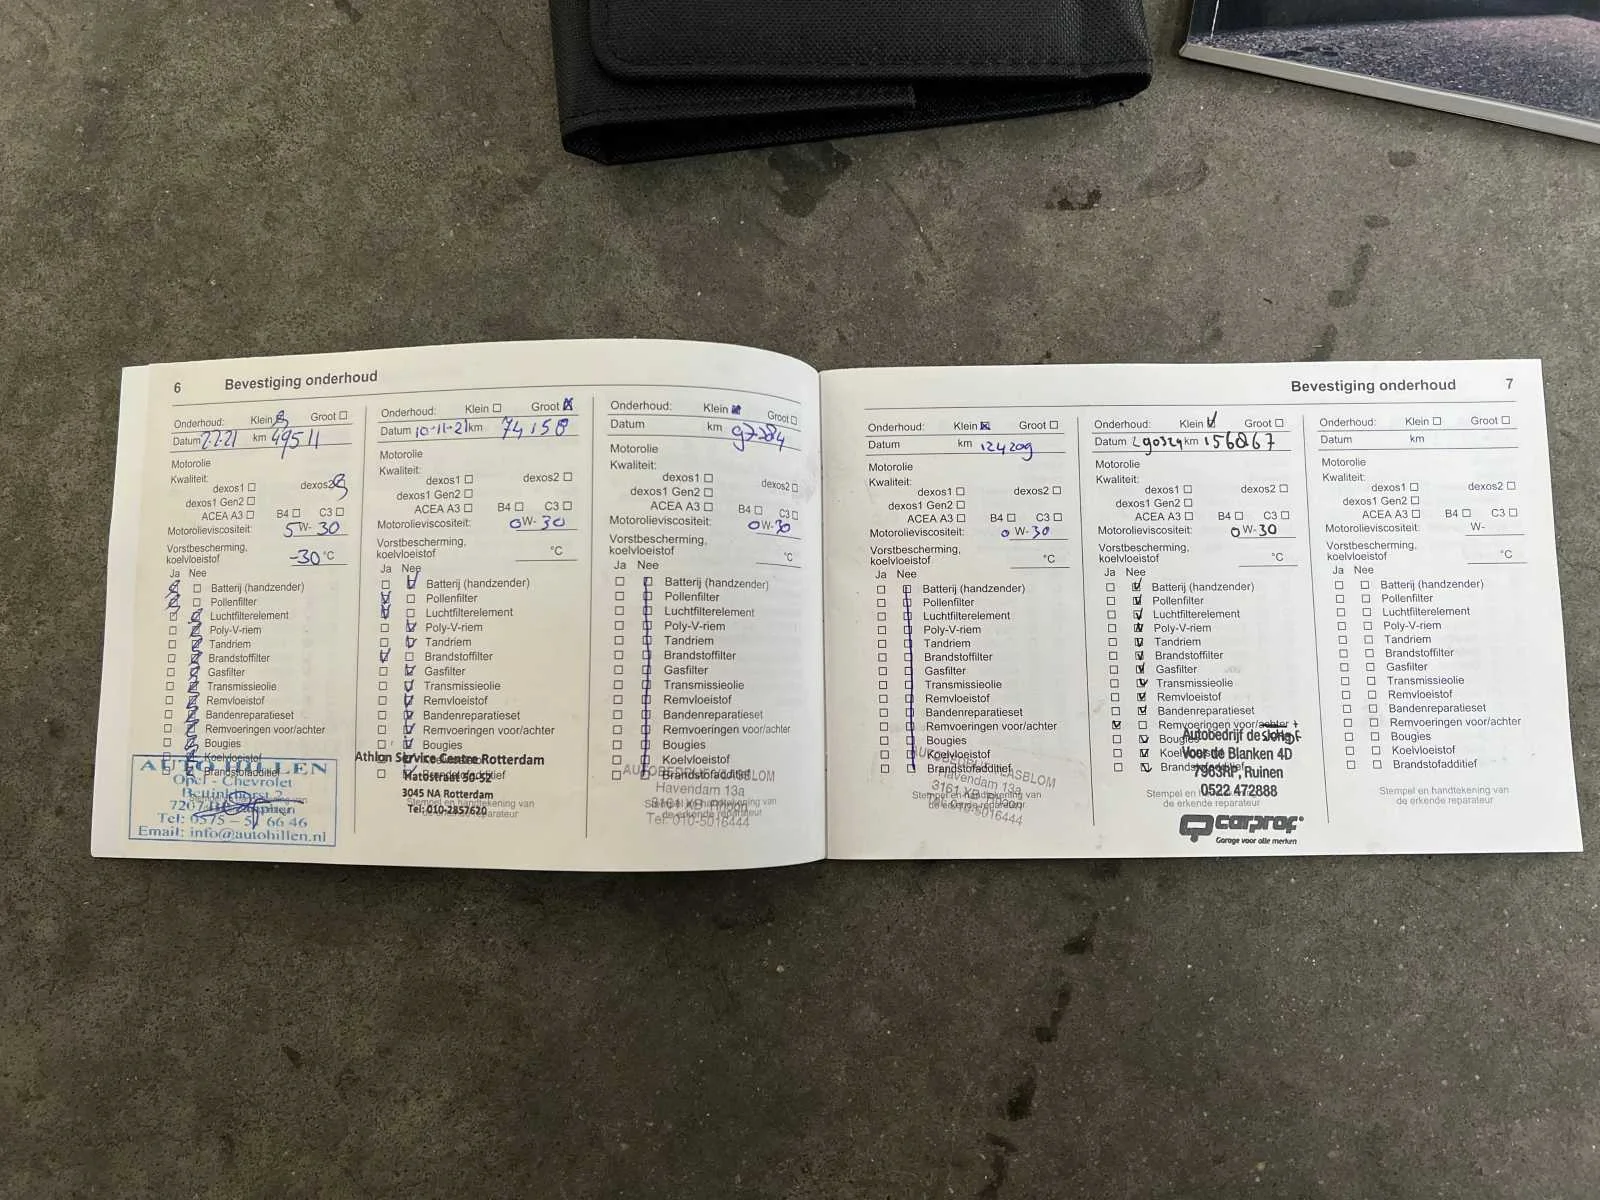 6 Bevestiging onderhoud
Onderhoud: Klein Groot
Datum 2-2-21 km 49511
Motorolie
Kwaliteit:
dexos1 dexos2
dexos1 Gen2
ACEA A3 B4 C3
Motorolieviscositeit: 5 W- 30
Vorstbescherming,
koelvloeistof -30 °C
Ja Nee
Batterij (handzender)
Pollenfilter
Luchtfilterelement
Poly-V-riem
Tandriem
Brandstoffilter
Gasfilter
Transmissieolie
Remvloeistof
Bandenreparatieset
Remvoeringen voor/achter
Bougies
Koelvloeistof
Brandstofadditief
AUTO HILLEN
Opel - Chevrolet
Beuinkhorst 2
Email: info@autohillen.nl
Onderhoud: Klein Groot
Datum 10-11-21 km 74158
Motorolie
Kwaliteit:
dexos1 dexos2
dexos1 Gen2
ACEA A3 B4 C3
Motorolieviscositeit: 0 W- 30
Vorstbescherming,
koelvloeistof °C
Ja Nee
Batterij (handzender)
Pollenfilter
Luchtfilterelement
Poly-V-riem
Tandriem
Brandstoffilter
Gasfilter
Transmissieolie
Remvloeistof
Bandenreparatieset
Remvoeringen voor/achter
Bougies
Koelvloeistof
Brandstofadditief
Athlon Service Centre Rotterdam
Matosstraat 50-52
3045 NA Rotterdam
Stempel en handtekening van
de erkende reparateur
Tel: 010-2857620
Onderhoud: Klein Groot
Datum km 97284
Motorolie
Kwaliteit:
dexos1 dexos2
dexos1 Gen2
ACEA A3 B4 C3
Motorolieviscositeit: 0 W- 30
Vorstbescherming,
koelvloeistof °C
Ja Nee
Batterij (handzender)
Pollenfilter
Luchtfilterelement
Poly-V-riem
Tandriem
Brandstoffilter
Gasfilter
Transmissieolie
Remvloeistof
Bandenreparatieset
Remvoeringen voor/achter
Bougies
Koelvloeistof
Brandstofadditief
Havendam 13a
3161 XB Rhoon
Tel: 010-5016444
Stempel en handtekening van
de erkende reparateur
Bevestiging onderhoud 7
Onderhoud: Klein Groot
Datum km 124209
Motorolie
Kwaliteit:
dexos1 dexos2
dexos1 Gen2
ACEA A3 B4 C3
Motorolieviscositeit: 0 W- 30
Vorstbescherming,
koelvloeistof °C
Ja Nee
Batterij (handzender)
Pollenfilter
Luchtfilterelement
Poly-V-riem
Tandriem
Brandstoffilter
Gasfilter
Transmissieolie
Remvloeistof
Bandenreparatieset
Remvoeringen voor/achter
Bougies
Koelvloeistof
Brandstofadditief
Havendam 13a
3161 XB Rhoon
Tel: 010-5016444
Stempel en handtekening van
de erkende reparateur
Onderhoud: Klein Groot
Datum 290324 km 156867
Motorolie
Kwaliteit:
dexos1 dexos2
dexos1 Gen2
ACEA A3 B4 C3
Motorolieviscositeit: 0 W- 30
Vorstbescherming,
koelvloeistof °C
Ja Nee
Batterij (handzender)
Pollenfilter
Luchtfilterelement
Poly-V-riem
Tandriem
Brandstoffilter
Gasfilter
Transmissieolie
Remvloeistof
Bandenreparatieset
Remvoeringen voor/achter
Bougies
Koelvloeistof
Brandstofadditief
Autobedrijf de Jong
Voor de Blanken 4D
7963RP, Ruinen
0522 472888
carprof
Garage voor alle merken
Onderhoud: Klein Groot
Datum km
Motorolie
Kwaliteit:
dexos1 dexos2
dexos1 Gen2
ACEA A3 B4 C3
Motorolieviscositeit: W-
Vorstbescherming,
koelvloeistof °C
Ja Nee
Batterij (handzender)
Pollenfilter
Luchtfilterelement
Poly-V-riem
Tandriem
Brandstoffilter
Gasfilter
Transmissieolie
Remvloeistof
Bandenreparatieset
Remvoeringen voor/achter
Bougies
Koelvloeistof
Brandstofadditief
Stempel en handtekening van
de erkende reparateur